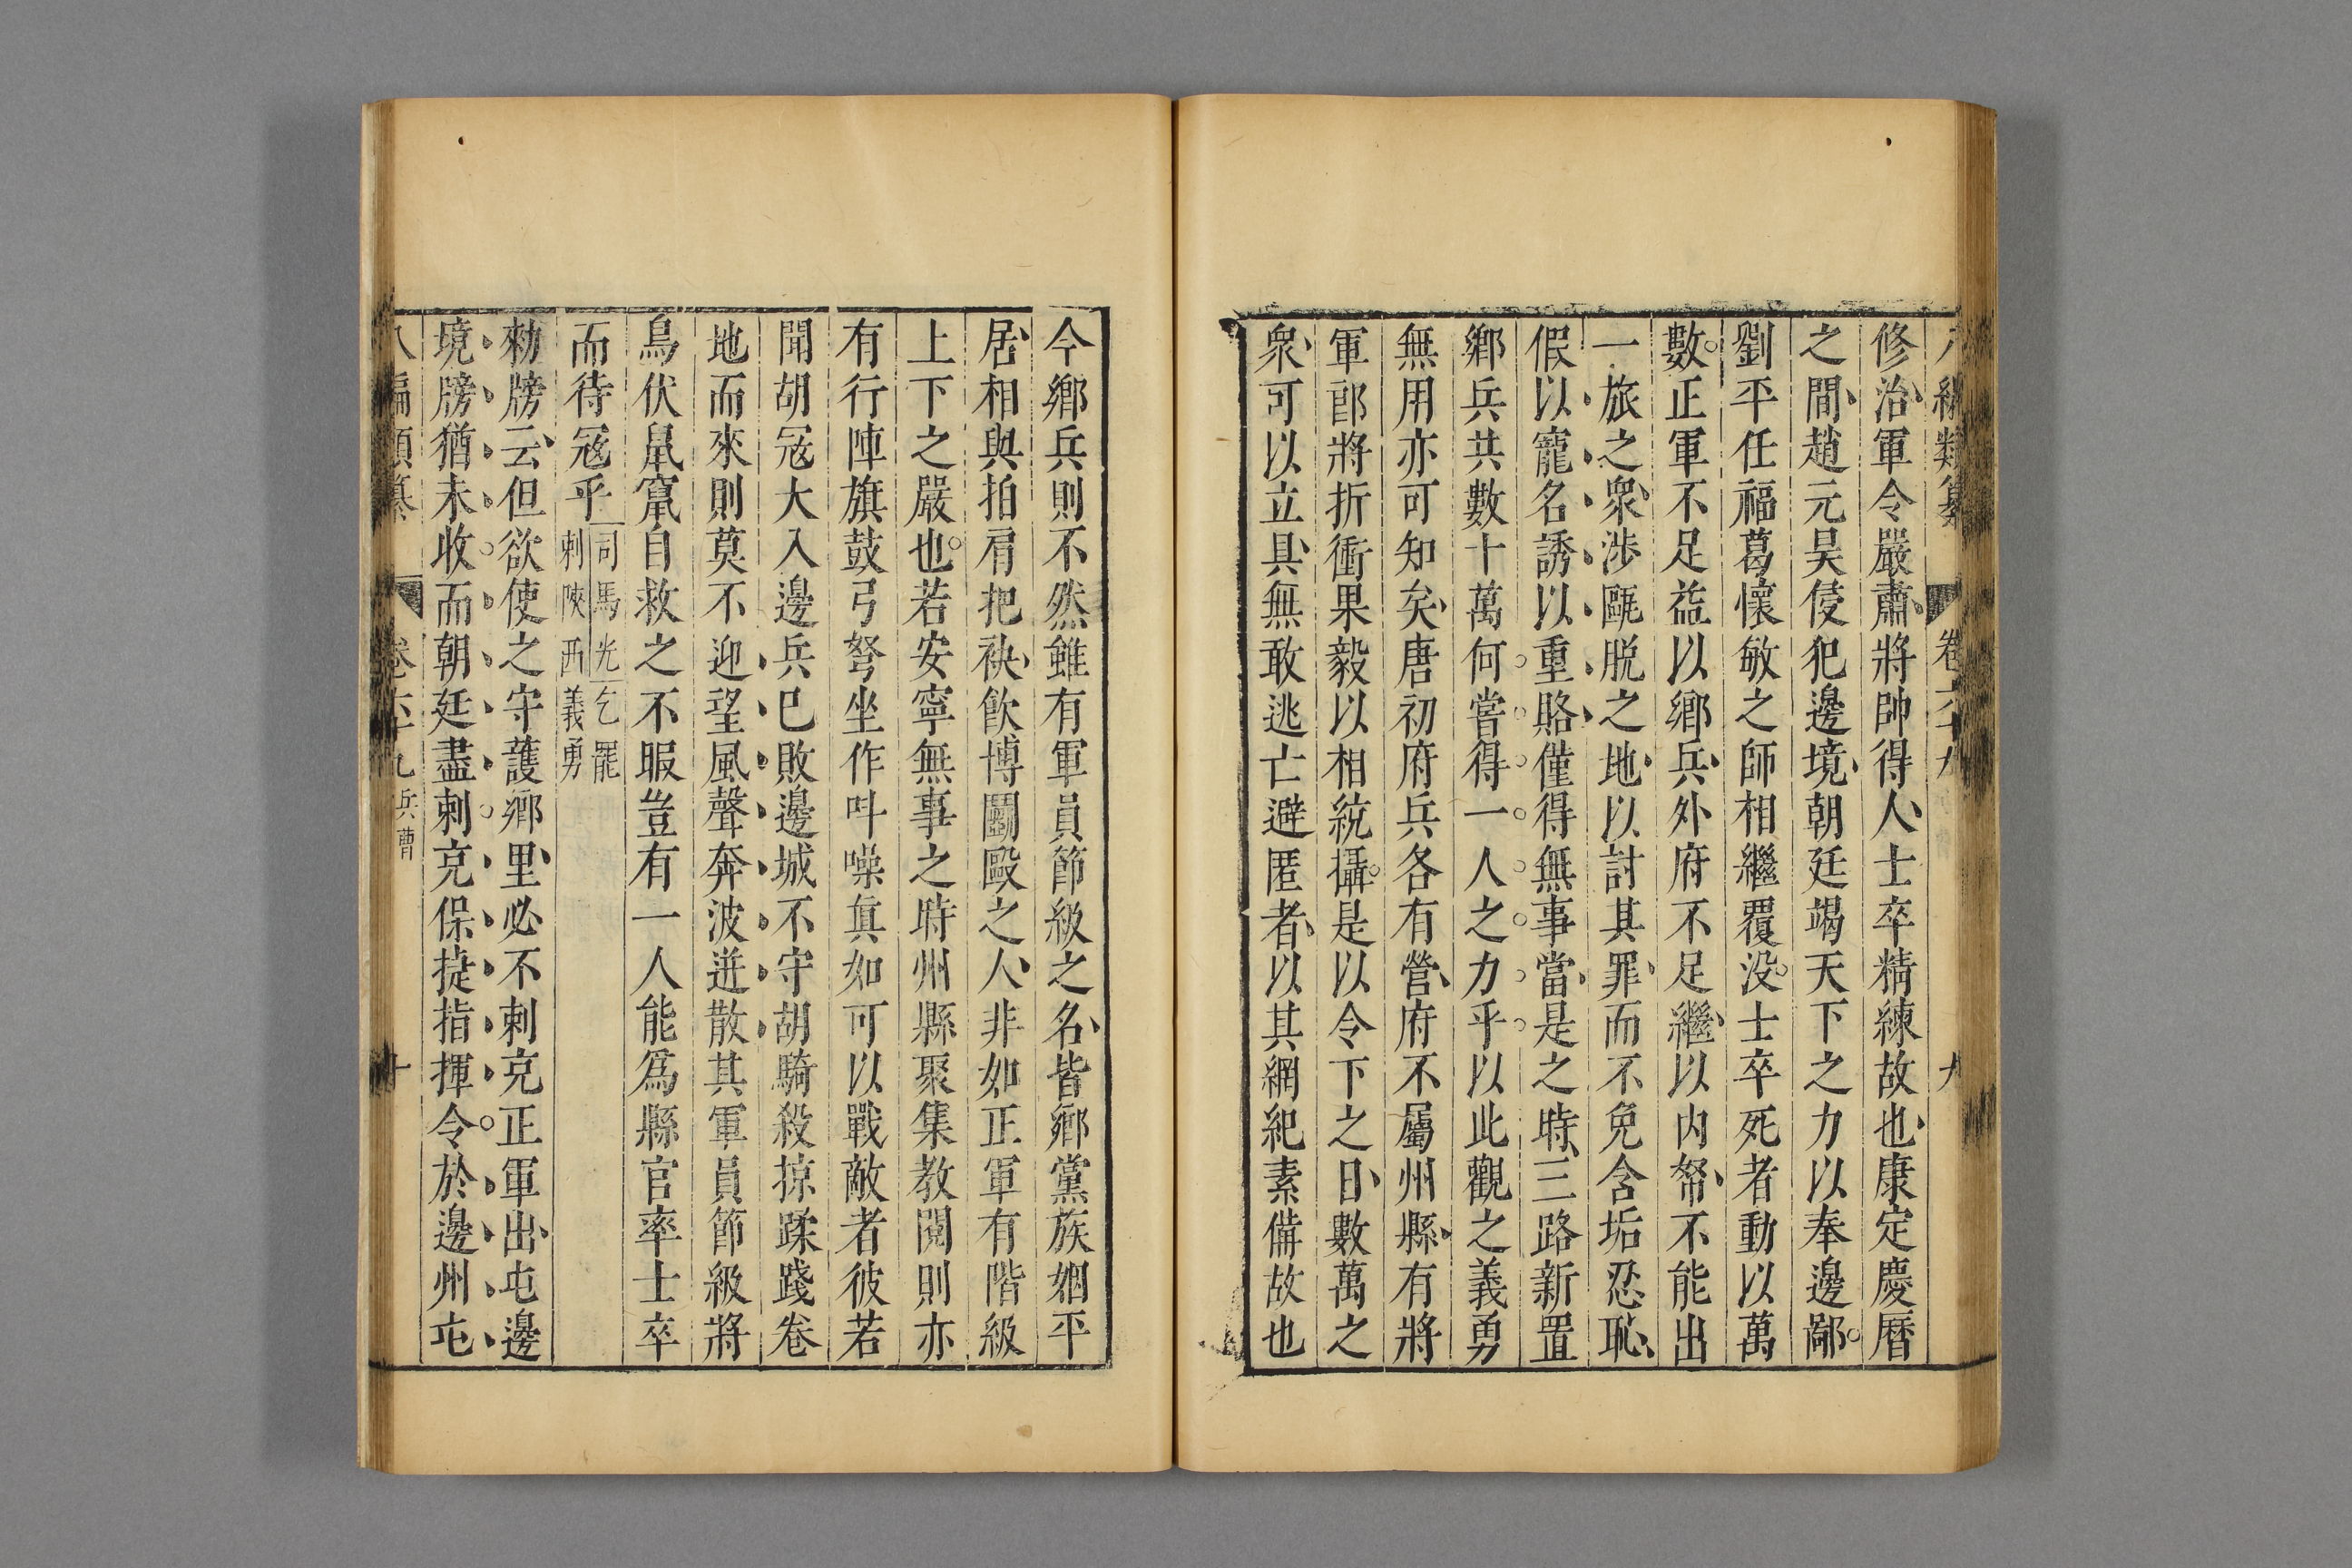 八編類纂 卷六十九 九
修治軍令嚴肅將帥得人士卒精練故也康定慶曆
之間趙元昊侵犯邊境朝廷竭天下之力以奉邊鄙
劉平任福葛懷敏之師相繼覆没士卒死者動以萬
數正軍不足益以鄉兵外府不足繼以内帑不能出
一旅之衆涉甌脱之地以討其罪而不免含垢忍恥
假以寵名誘以重賂僅得無事當是之時三路新置
鄉兵共數十萬何嘗得一人之力乎以此觀之義勇
無用亦可知矣唐初府兵各有營府不屬州縣有將
軍郎將折衝果毅以相統攝是以令下之日數萬之
衆可以立具無敢逃亡避匿者以其網紀素備故也
今鄉兵則不然雖有軍員節級之名皆鄉黨族姻平
居相與拍肩把袂飲博鬬毆之人非如正軍有階級
上下之嚴也若安寧無事之時州縣聚集教閱則亦
有行陣旗鼓弓弩坐作呌噪眞如可以戰敵者彼若
聞胡冦大入邊兵已敗邊城不守胡騎殺掠蹂踐卷
地而來則莫不迎望風聲奔波迸散其軍員節級將
鳥伏鼠竄自救之不暇豈有一人能爲縣官率士卒
而待冦乎
司馬光乞罷
刺陝西義勇
勑牓云但欲使之守護鄉里必不刺充正軍出屯邊
境牓猶未收而朝廷盡刺充保捷指揮令於邊州屯
八編類纂 卷六十九 兵曹 十